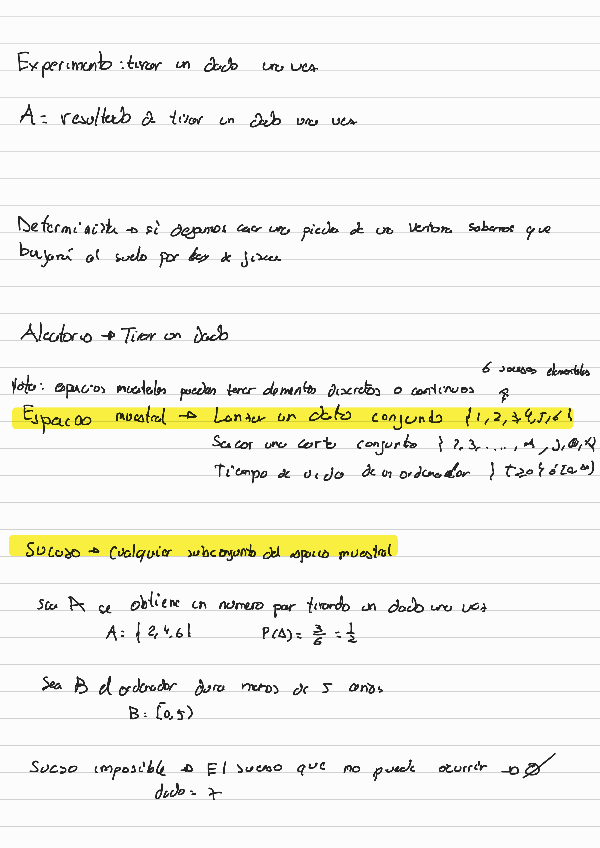 Experimento: tirar un dado una vez
A = resultado de tirar un dado una vez
Determinista → si dejamos caer una piedra de una ventana sabemos que
bajará al suelo por ley de
Aleatorio → Tirar un dado
6 sucesos elementales
Nota: espacios muestrales pueden tener elementos discretos o continuos
Espacio muestral → Lanzar un dado conjunto {1, 2, 3, 4, 5, 6}
Sacar una carta conjunto { 2, 3, ...., A, J, Q, K}
Tiempo de vida de un ordenador { t≥0} ó [0, ∞)
Suceso → Cualquier subconjunto del espacio muestral
sea A se obtiene un numero par tirando un dado una vez
A = {2, 4, 6} P(A) = 3/6 = 1/2
Sea B el ordenador dura menos de 5 años
B = [0, 5)
Suceso imposible → El suceso que no puede ocurrir → ∅
dado = 7